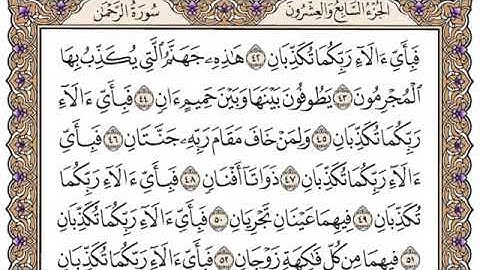 سُورَةُ الرَّحۡمَٰن الجُزءُ السَّابِعُ وَالعِشۡرُونَ
فَبِأَيِّ ءَالَآءِ رَبِّكُمَا تُكَذِّبَانِ ٤٢ هَٰذِهِۦ جَهَنَّمُ ٱلَّتِي يُكَذِّبُ بِهَا
ٱلۡمُجۡرِمُونَ ٤٣ يَطُوفُونَ بَيۡنَهَا وَبَيۡنَ حَمِيمٍ ءَانٖ ٤٤ فَبِأَيِّ ءَالَآءِ
رَبِّكُمَا تُكَذِّبَانِ ٤٥ وَلِمَنۡ خَافَ مَقَامَ رَبِّهِۦ جَنَّتَانِ ٤٦ فَبِأَيِّ
ءَالَآءِ رَبِّكُمَا تُكَذِّبَانِ ٤٧ ذَوَاتَآ أَفۡنَانٖ ٤٨ فَبِأَيِّ ءَالَآءِ رَبِّكُمَا
تُكَذِّبَانِ ٤٩ فِيهِمَا عَيۡنَانِ تَجۡرِيَانِ ٥٠ فَبِأَيِّ ءَالَآءِ رَبِّكُمَا تُكَذِّبَانِ
٥١ فِيهِمَا مِن كُلِّ فَٰكِهَةٖ زَوۡجَانِ ٥٢ فَبِأَيِّ ءَالَآءِ رَبِّكُمَا تُكَذِّبَانِ